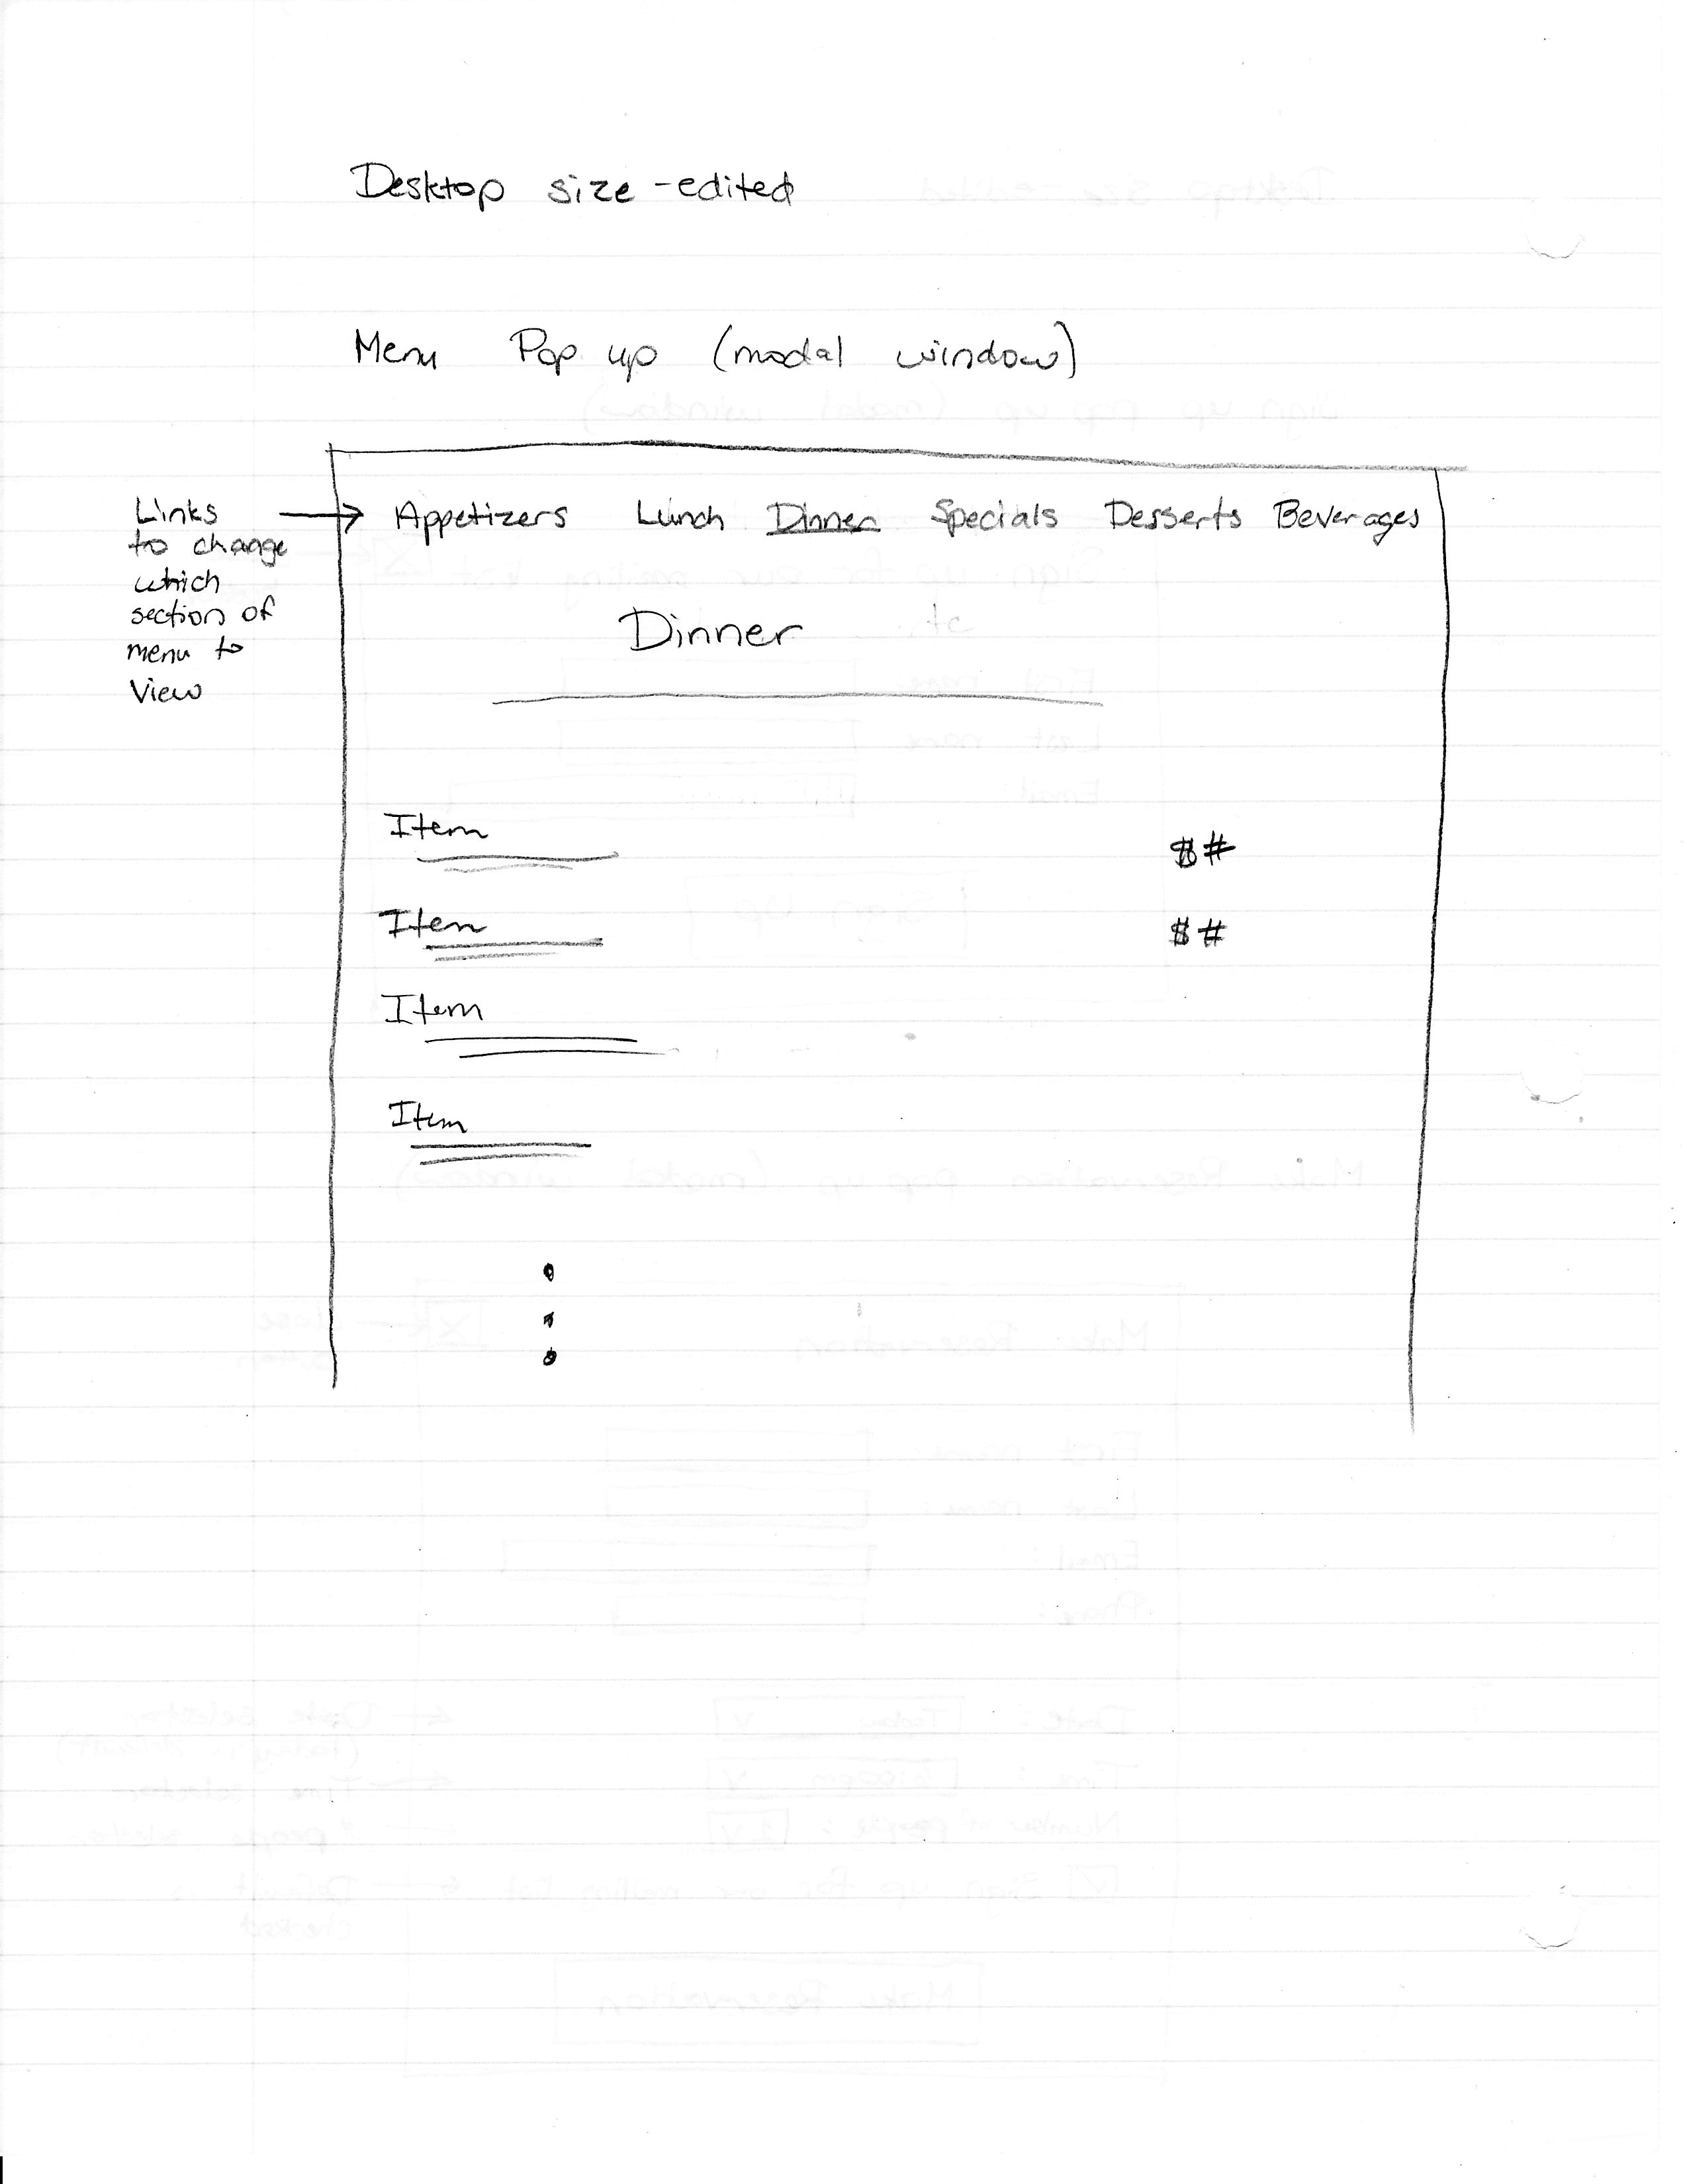 Desktop size - edited
Menu Pop up (modal window)
Links
to change
which
section of
menu to
View
Appetizers Lunch Dinner Specials Desserts Beverages
Dinner
Item $#
Item $#
Item
Item